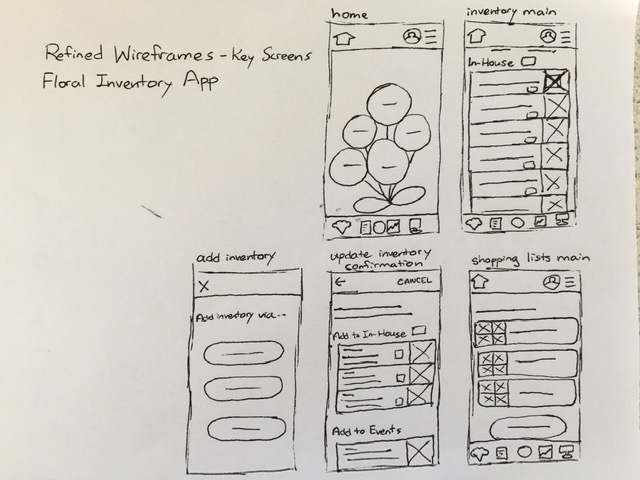 Refined Wireframes - Key Screens
Floral Inventory App
home
inventory main
In-House
add inventory
Add inventory via...
update inventory
confirmation
CANCEL
Add to In-House
Add to Events
shopping lists main